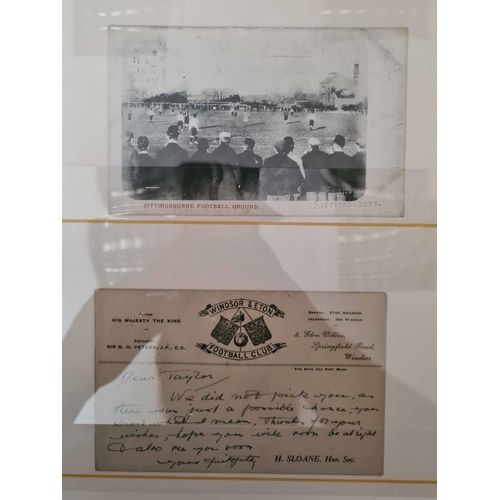 SITTINGBOURNE FOOTBALL GROUND.
PATRON
HIS MAJESTY THE KING
PRESIDENT
SIR G. H. VETCH, J.P., C.C.
WINDSOR & ETON
FOOTBALL CLUB
GROUND: STAG MEADOW
TELEPHONE: WINDSOR
5, Glen Villas,
Springfield Road,
Windsor
Dear Taylor,
We did not pick you, as
there was just a possible chance you
know what I mean, Thanks for your
wishes, hope you will soon be alright
& also see you soon
yours faithfully
H. SLOANE, Hon. Sec.